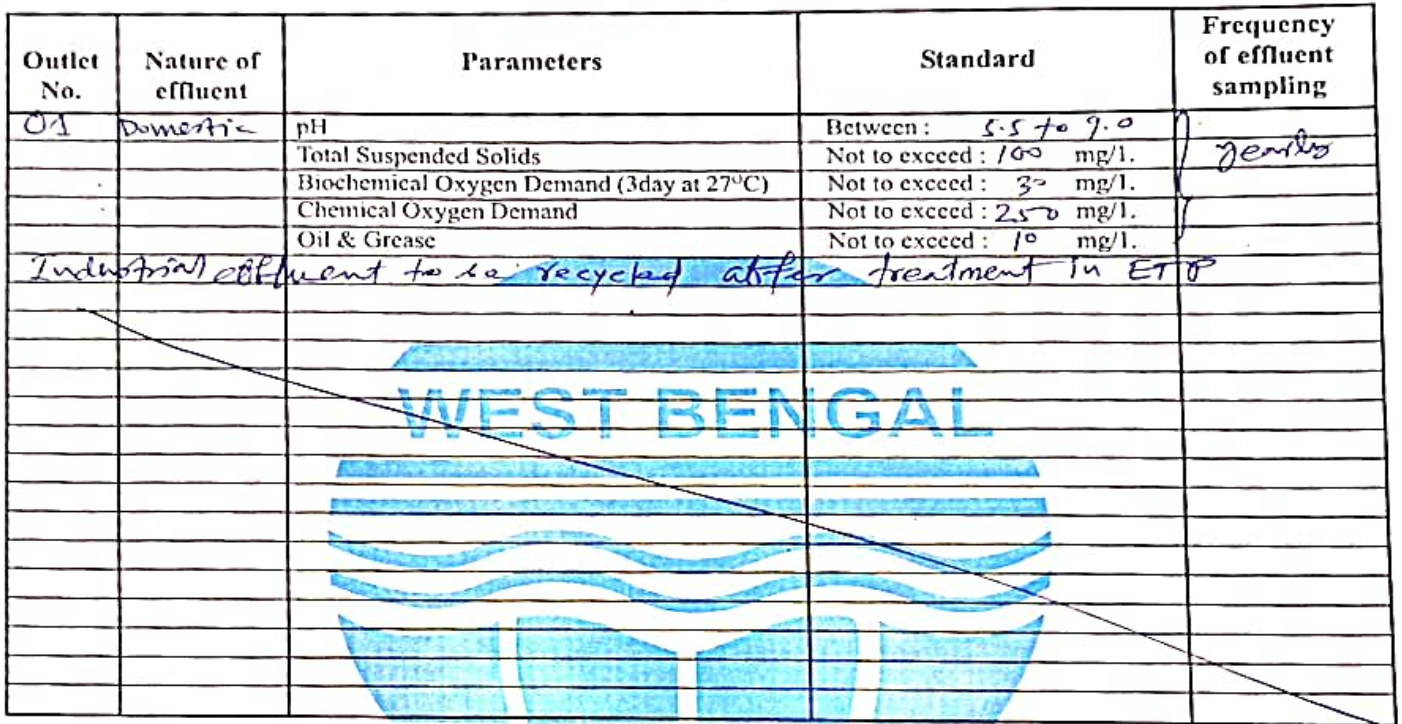 Outlet No. Nature of effluent Parameters Standard Frequency of effluent sampling
01 Domestic pH Between : 5.5 to 9.0
Total Suspended Solids Not to exceed : 100 mg/l. yearly
Biochemical Oxygen Demand (3day at 27°C) Not to exceed : 30 mg/l.
Chemical Oxygen Demand Not to exceed : 250 mg/l.
Oil & Grease Not to exceed : 10 mg/l.
Industrial effluent to be recycled after treatment in ETP
WEST BENGAL